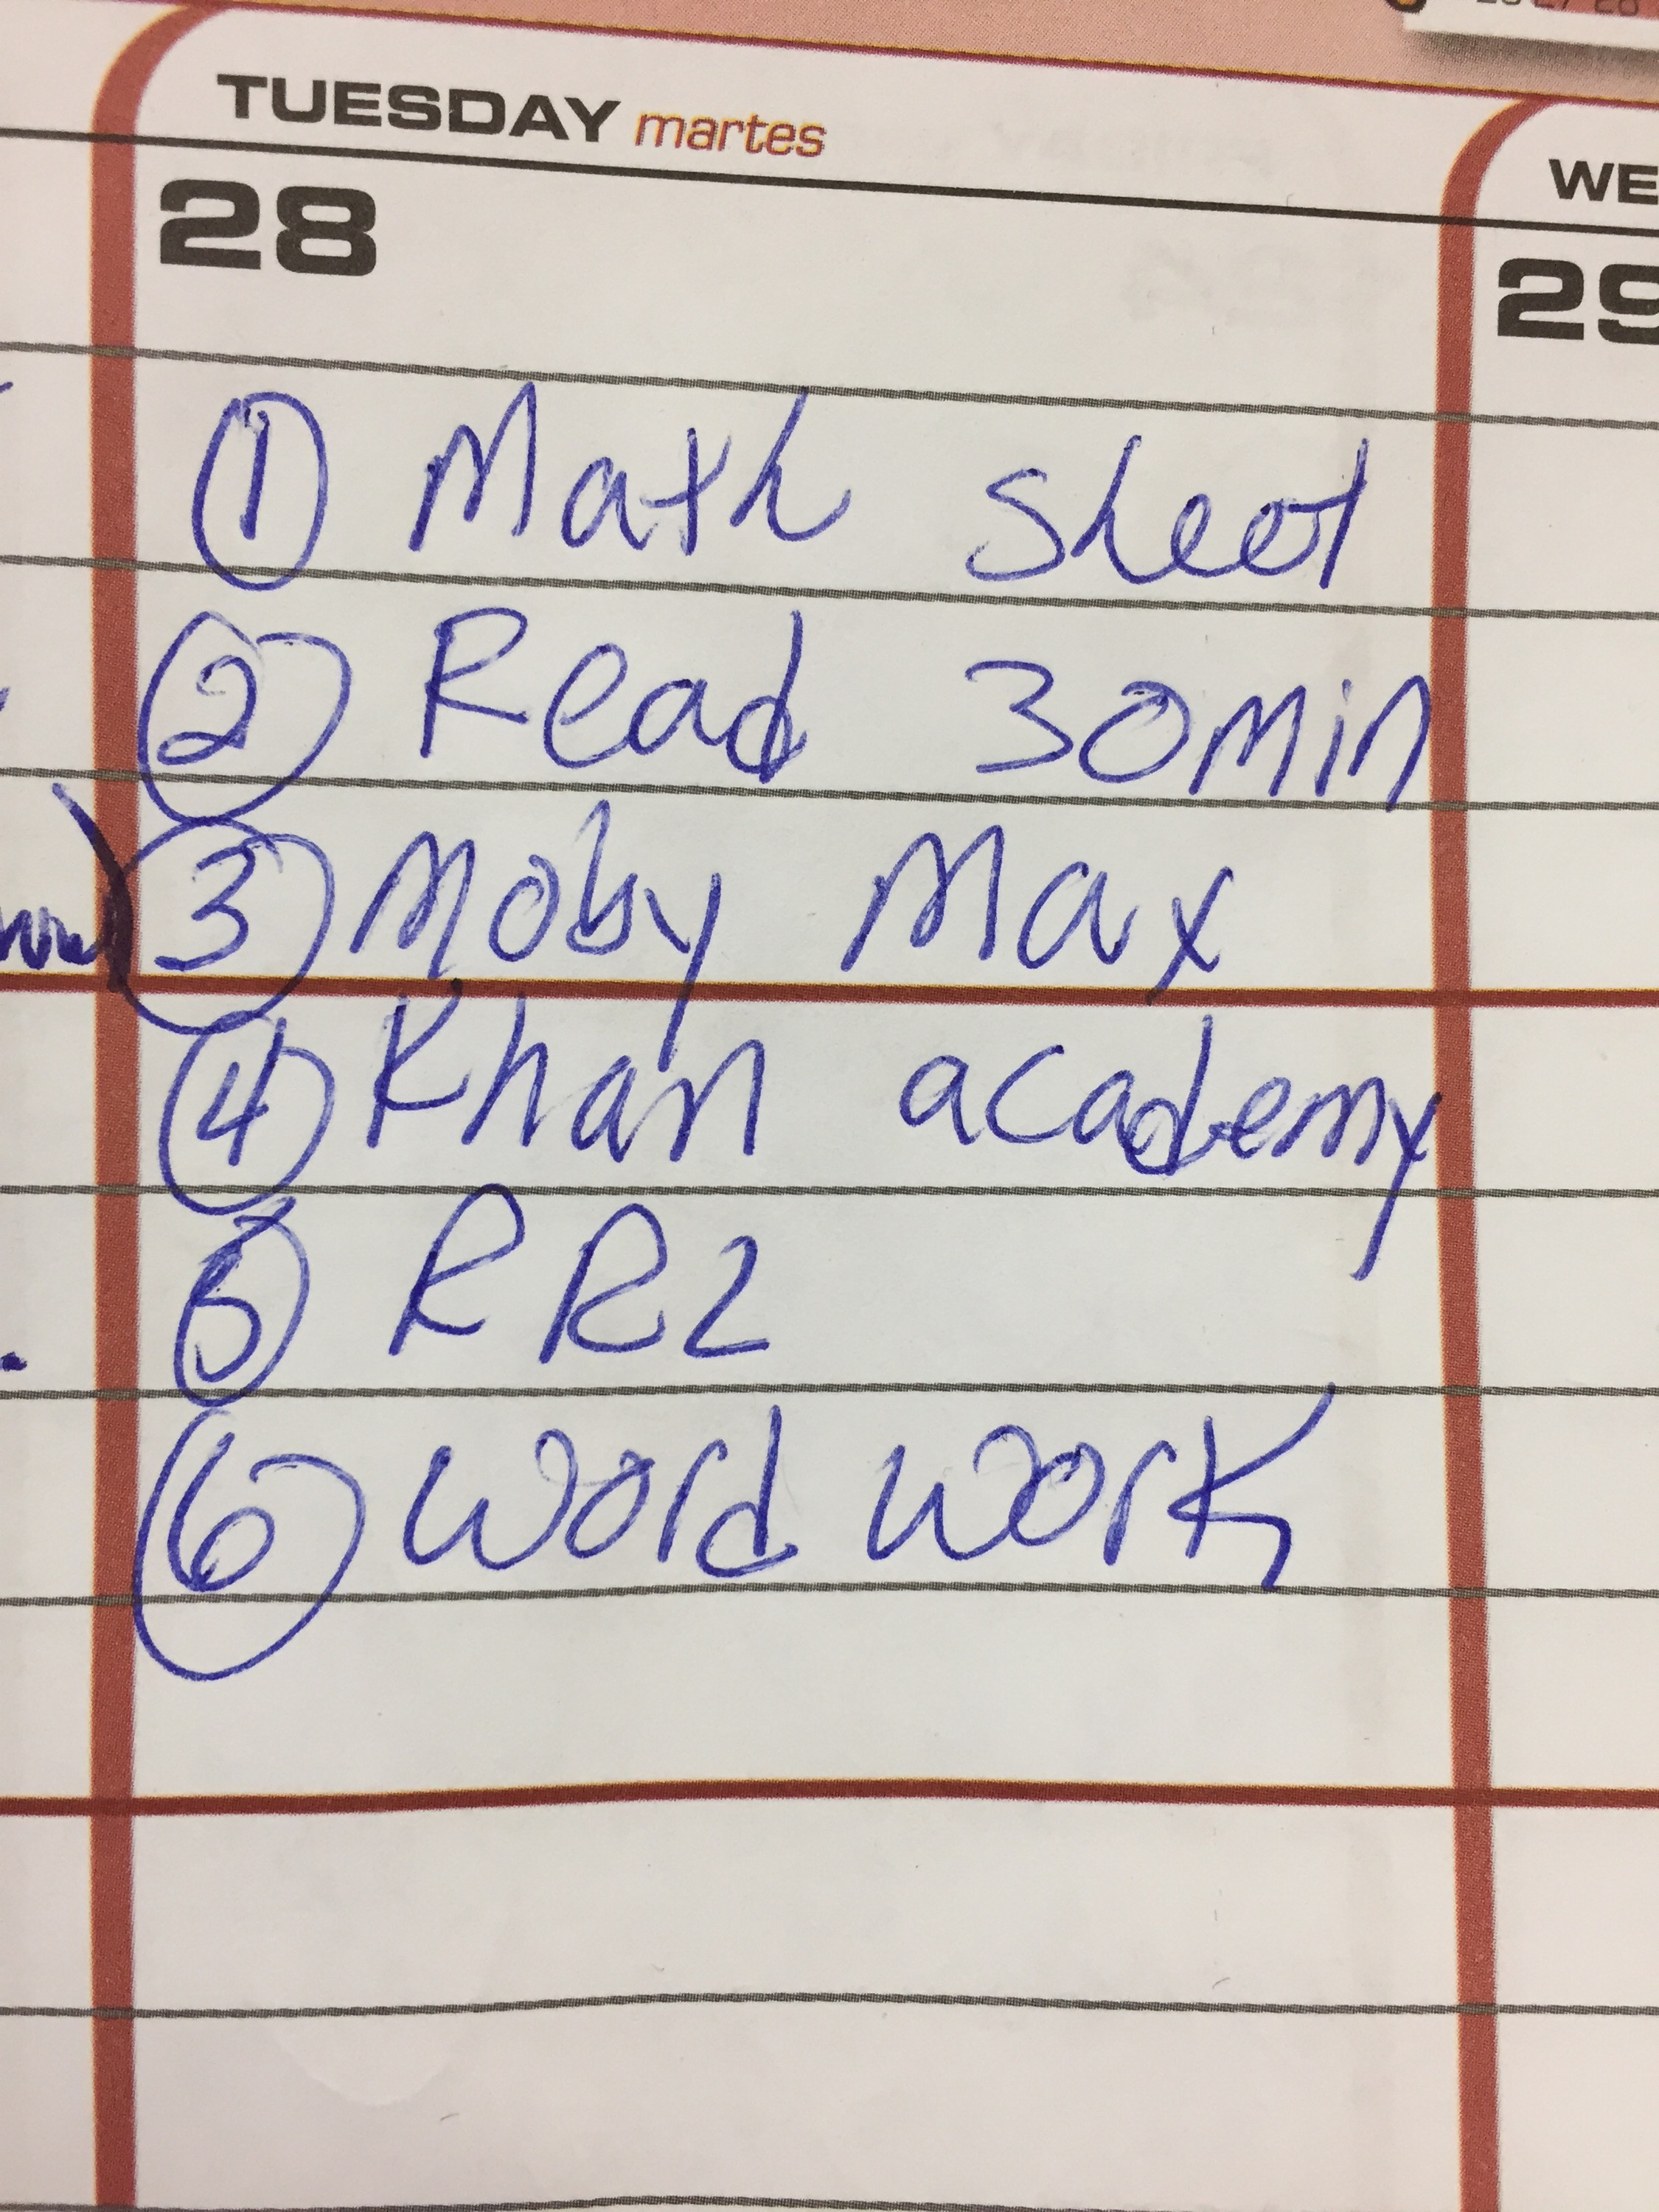 TUESDAY martes
28
WE
29
① Math sheet
② Read 30min
③ Moby Max
④ Khan academy
⑤ RR2
⑥ Word work